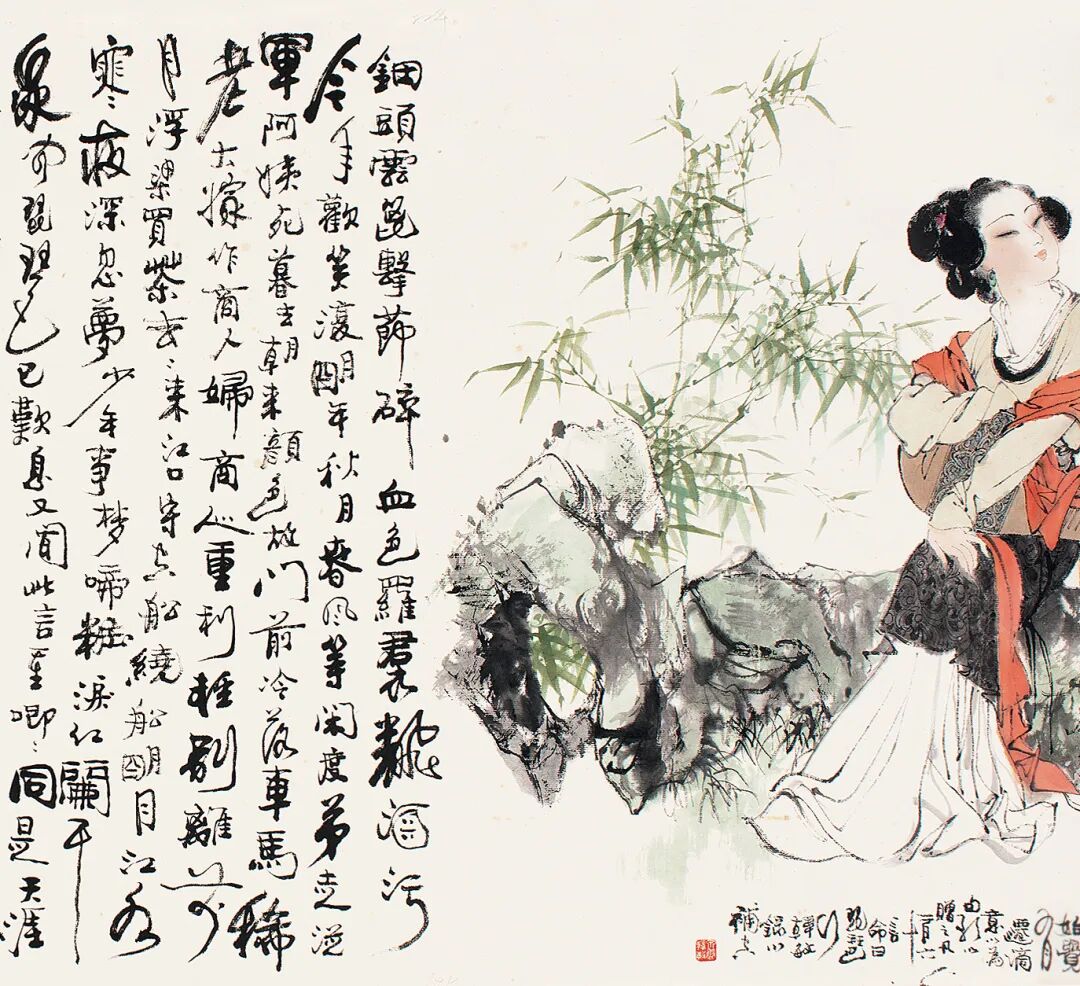 鈿頭雲篦擊節碎血色羅裙翻酒污
今年歡笑復明年秋月春風等閑度弟走從
軍阿姨死暮去朝來顏色故門前冷落車馬稀
老大嫁作商人婦商人重利輕別離前
月浮梁買茶去〻來江口守空船繞船明月江水
寒〻夜深忽夢少年事梦啼粧淚紅闌干
我聞琵琶已歎息又聞此言重唧〻同是天涯
始覺
有
遷謫
意以為
歌以
贈之凡
六
言
命曰
琵琶
行
韓敏
錄以
補空